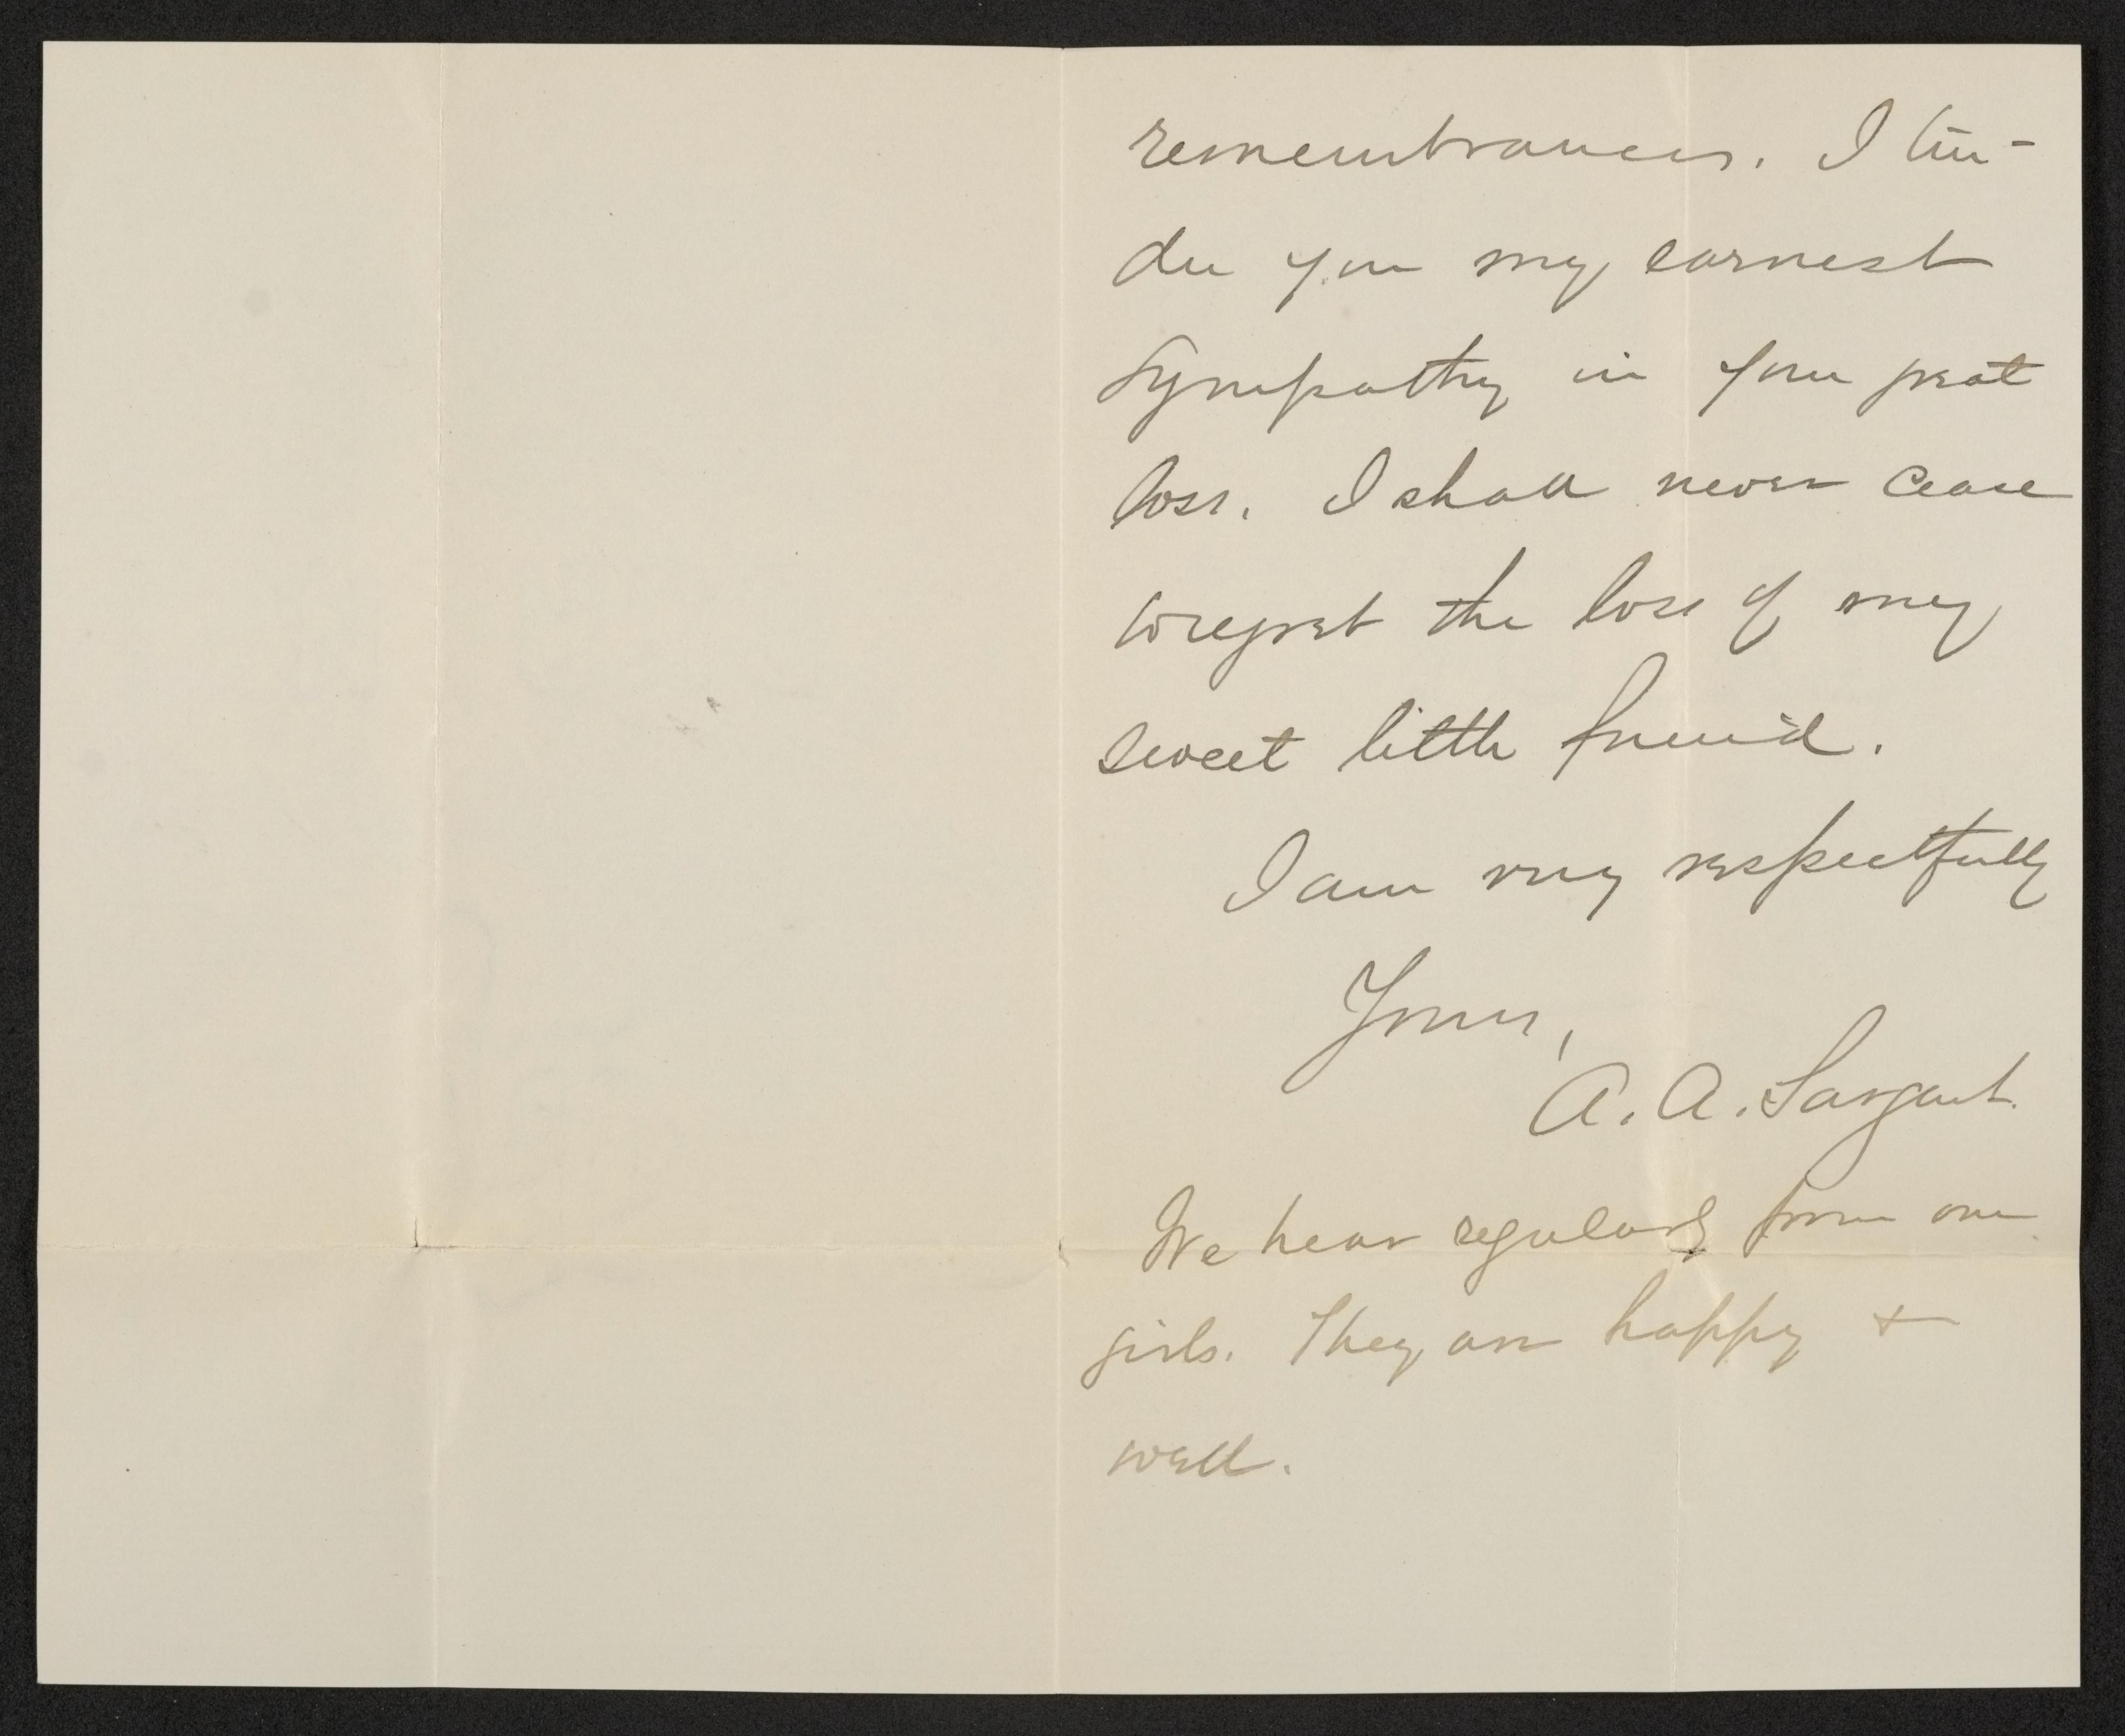 remembrances. I ten-
der you my earnest
sympathy in your great
loss. I shall never cease
to regret the loss of my
sweet little friend.
I am very respectfully
Yours,
A. A. Sargent.
We hear regularly from our
girls. They are happy +
well.